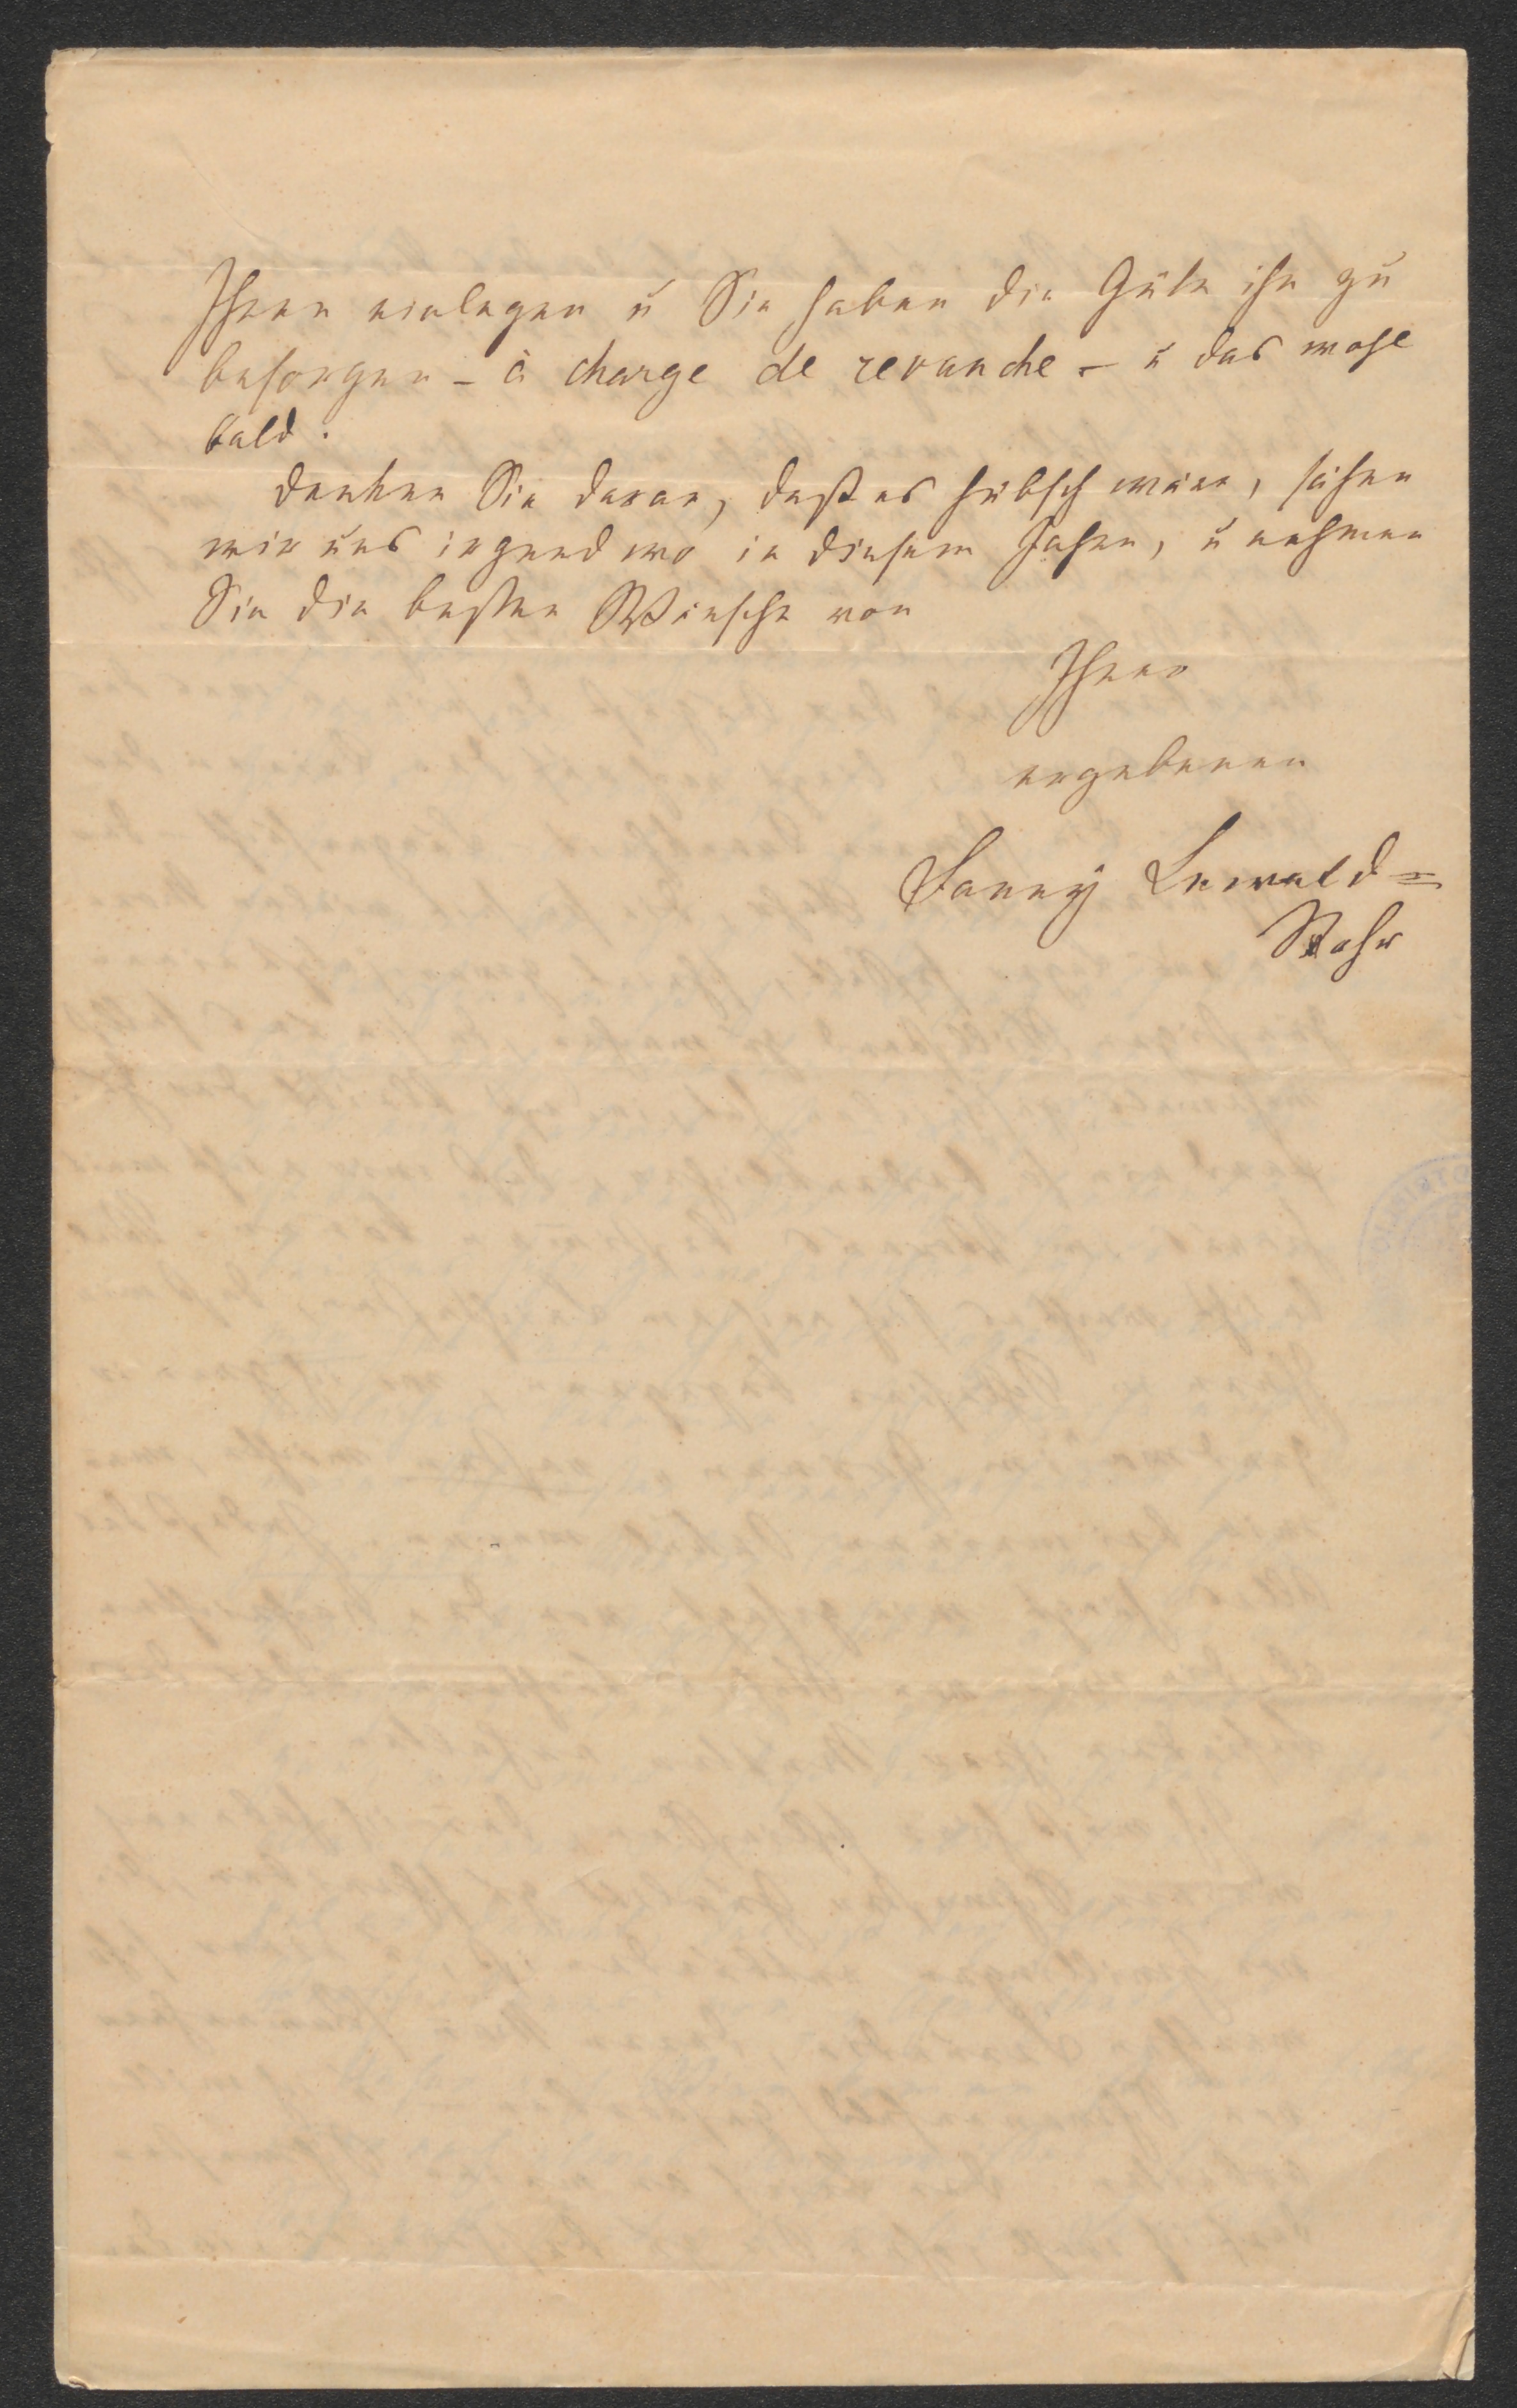 Ihnen einlegen u Sie haben die Güte ihn zu
besorgen – à charge de revanche – u das wohl
bald.
Denken Sie daran, daß es hübsch wäre, sähen
wir uns irgend wo in diesem Jahre, u nehmen
Sie die besten Wünsche von
Ihrer
ergebenen
Fanny Lewald=
Stahr